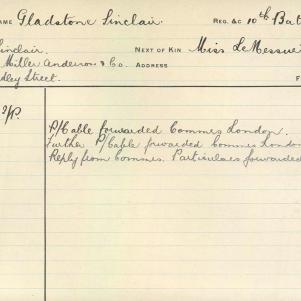 AME Gladstone Sinclair. REG. &C 10th Bat
Sinclair. NEXT OF KIN Miss LeMessuri
Miller Anderson & Co. ADDRESS
dley Street. F
P/Cable forwarded Commes London.
Further P/Cable forwarded Commes London
Reply from Commes. Particulars forwarded